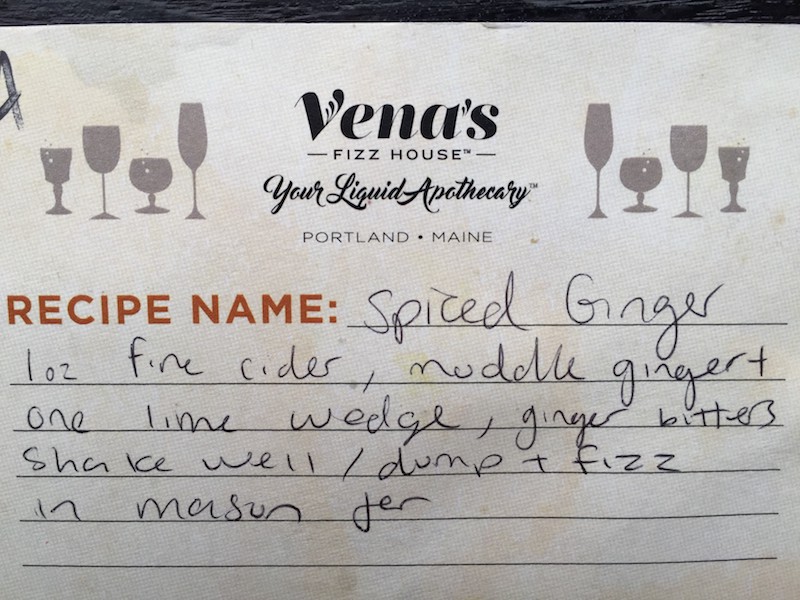 Vena's
FIZZ HOUSE™
Your Liquid Apothecary™
PORTLAND • MAINE
RECIPE NAME: Spiced Ginger
1oz fire cider, muddle ginger +
one lime wedge, ginger bitters
Shake well / dump + fizz
in mason jar